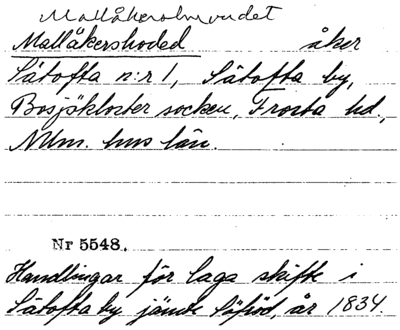 Mallåkershoved
Mallåkershoded åker
Såtofta n:r 1, Såtofta by,
Bosjökloster socken, Frosta hd.,
Mlm. hus län.
Nr 5548.
Handlingar för laga skifte i
Såtofta by jämte år 1834.